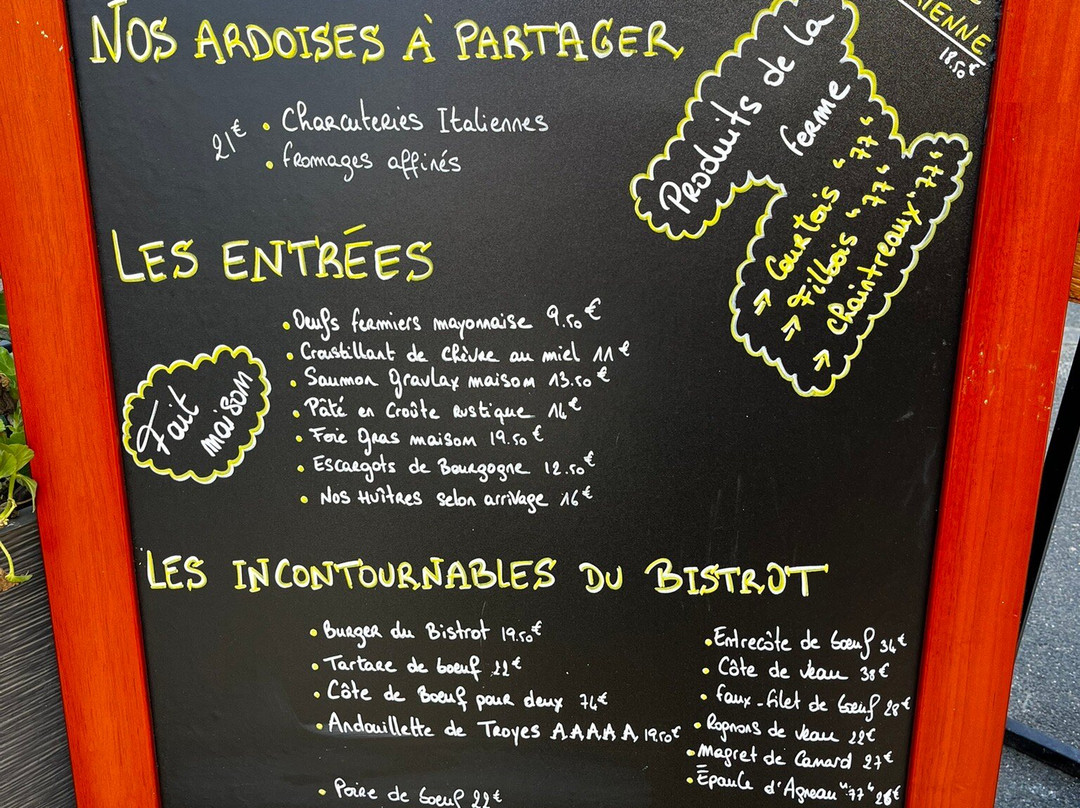 NOS ARDOISES À PARTAGER
21€ • Charcuteries Italiennes
• fromages affinés
IENNE
18.50€
Produits de la
ferme
→ Courtois "77"
→ Filbois "77"
→ Chaintreaux "77"
LES ENTRÉES
Fait
maison
• Oeufs fermiers mayonnaise 9.50€
• Croustillant de Chèvre au miel 11€
• Saumon Gravlax maison 13.50€
• Pâté en Croûte rustique 14€
• Foie Gras maison 19.50€
• Escargots de Bourgogne 12.50€
• Nos Huîtres selon arrivage 16€
LES INCONTOURNABLES DU BISTROT
• Burger du Bistrot 19.50€
• Tartare de boeuf 22€
• Côte de Boeuf pour deux 74€
• Andouillette de Troyes AAAAA 19.50€
• Poire de boeuf 22€
• Entrecôte de boeuf 34€
• Côte de veau 38€
• faux-filet de boeuf 28€
• Rognons de veau 22€
• Magret de Canard 27€
• Épaule d'Agneau "77" 26€